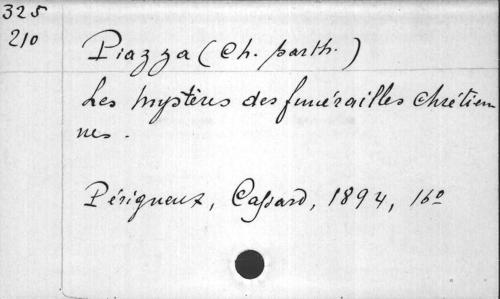 325
210
Piazza (Ch. parth.)
Les mystères des funérailles chrétien
nes.
Périgueux, Cassard, 1894, 16º